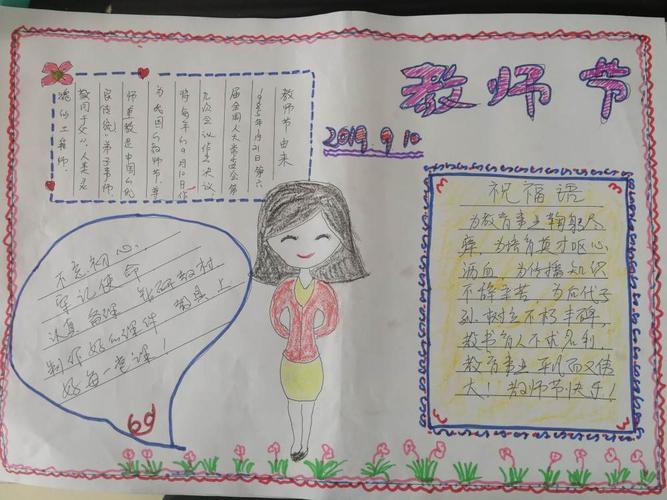 教师节
2019 9 10
教师节由来
1985年1月21日第六
届全国人大常委会第
九次会议作出决议,
将每年的9月10日作
为我国的教师节。尊
师重教是中国的优
传统:弟子事师,
敬同于父",人类灵
魂的工程师.
不忘初心,
牢记使命
认真 备课 钻研教材
制作好的课件 上
好每一堂课!
祝福语
为教育事业鞠躬尽
瘁,为培育英才呕心
沥血,为传播知识
不辞辛苦,为后代子
孙树立不朽丰碑,
教书育人不求名利,
教育事业平凡而又伟
大!教师节快乐!